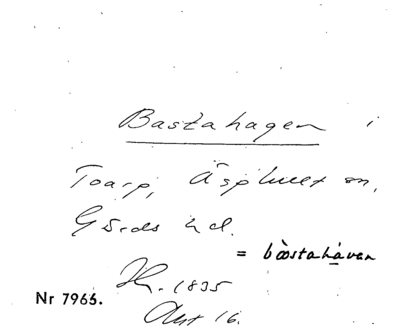 Bastahagen i
Toarp, Äsphult sn,
Gärds hd.
= bàstahàvan
Hr. 1835
Akt 16.
Nr 7965.